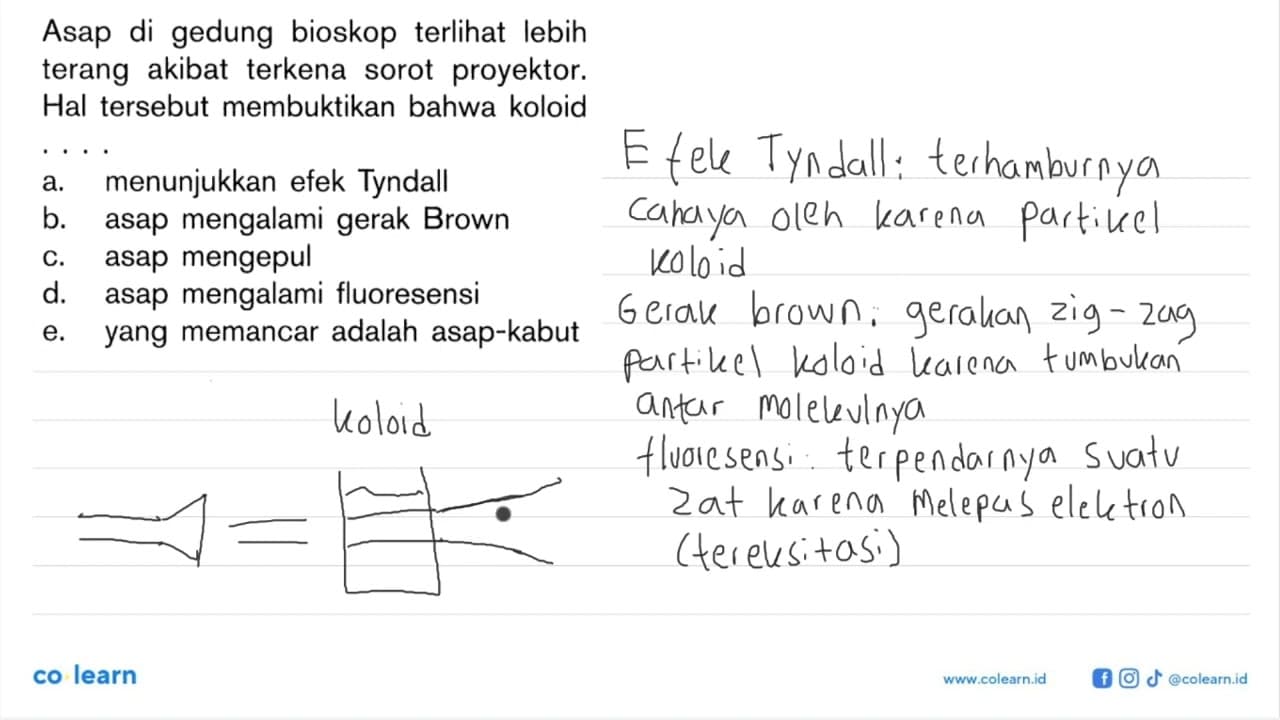 Asap di gedung bioskop terlihat lebih
terang akibat terkena sorot proyektor.
Hal tersebut membuktikan bahwa koloid
. . . .
a. menunjukkan efek Tyndall
b. asap mengalami gerak Brown
c. asap mengepul
d. asap mengalami fluoresensi
e. yang memancar adalah asap-kabut
koloid
Efek Tyndall: terhamburnya
cahaya oleh karena partikel
koloid
Gerak brown: gerakan zig-zag
partikel koloid karena tumbukan
antar molekulnya
fluoresensi: terpendarnya suatu
zat karena melepas elektron
(tereksitasi)
co learn
www.colearn.id
@colearn.id